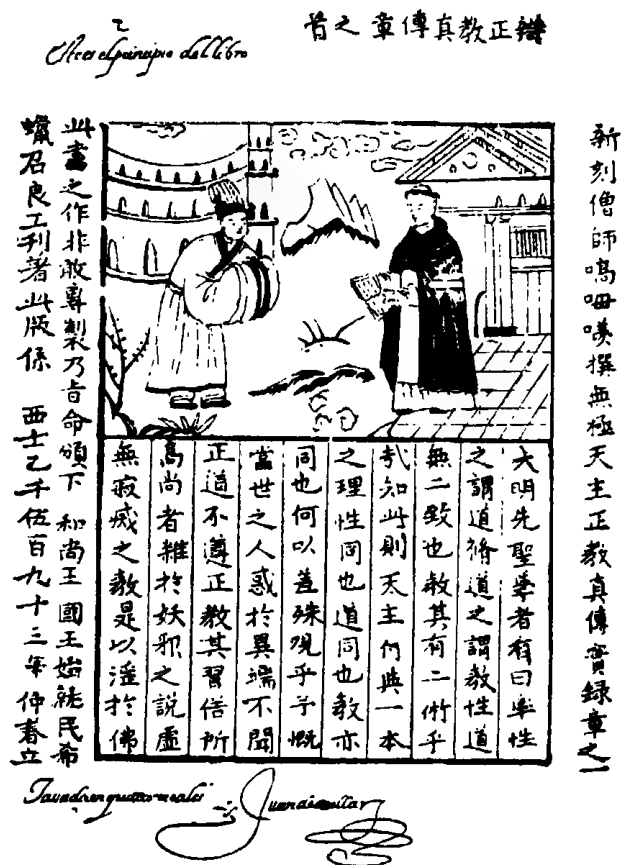 辯正教真傳章之首
Este es el principio del libro
新刻僧師嗃呣撰無極天主正教真傳實錄章之一
大明先聖學者有曰率性
之謂道脩道之謂教性道
無二致也教其有二術乎
哉知此則天主付與一本
之理性同也道同也教亦
同也何以差殊觀乎予慨
當世之人惑於異端不聞
正道不遵正教其習俗所
為尚者雜於妖邪之說虛
無寂滅之教是以滛於佛
此書之作非敢專製乃旨命頒下 和尚王 國王始就民希
蠟召良工刊著此版係 西士乙千伍百九十三年仲春立
Tasado en quatro reales
Juan de cuellar